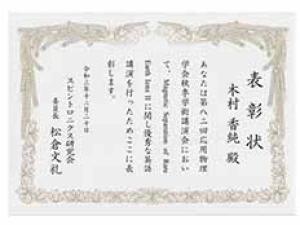 表彰状
木村 香純 殿
あなたは第八二回応用物理
学会秋季学術講演会におい
て、Magnetic Separation of Rare
Earth Ions IIに関し優秀な英語
講演を行ったためここに表
彰します。
令和三年十二月二十日
スピントロニクス研究会
委員長 松倉文礼